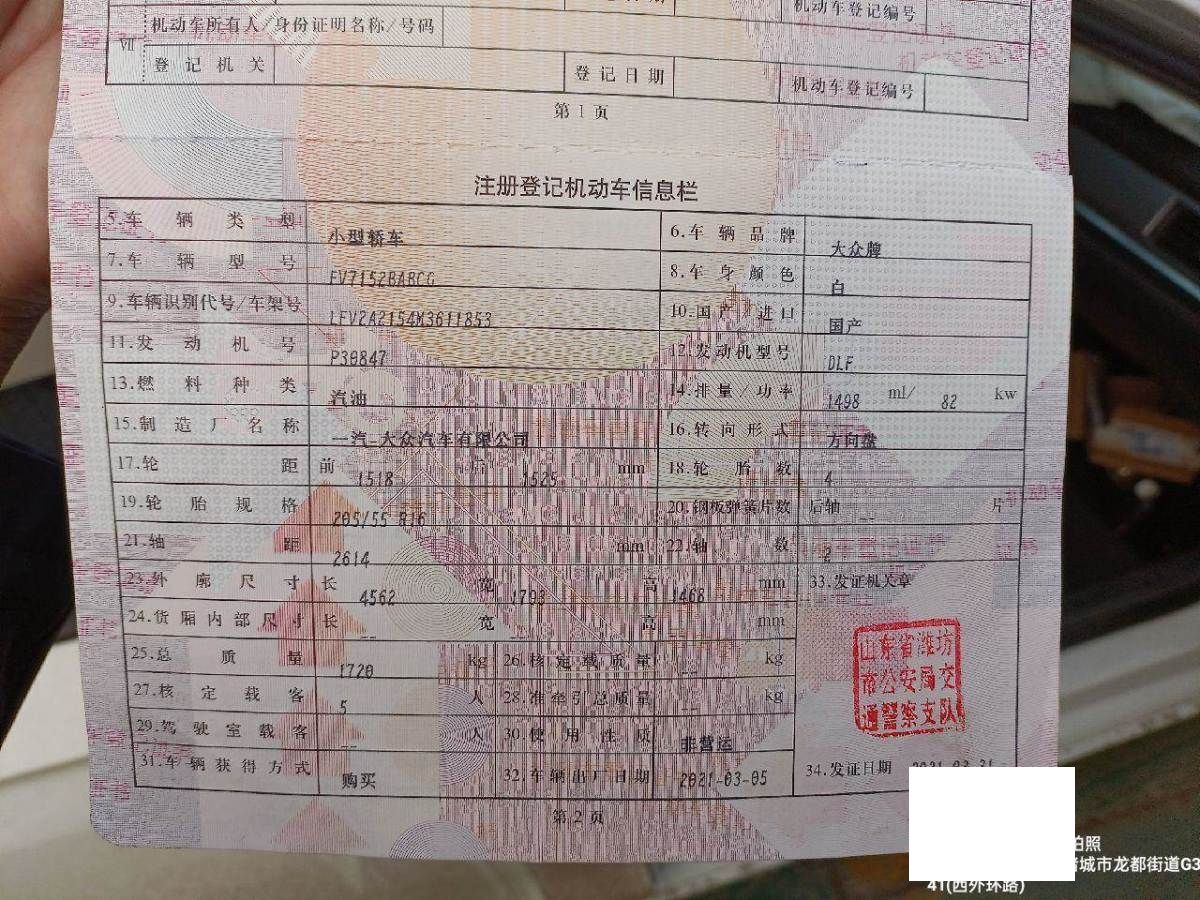 机动车登记编号
Ⅶ 机动车所有人/身份证明名称/号码
登记机关 登记日期 机动车登记编号
第1页
注册登记机动车信息栏
5.车辆类型 小型轿车 6.车辆品牌 大众牌
7.车辆型号 FV7152BABCG 8.车身颜色 白
9.车辆识别代号/车架号 LFV2A2154M3611853 10.国产/进口 国产
11.发动机号 P30847 12.发动机型号 DLF
13.燃料种类 汽油 14.排量/功率 1498 ml/ 82 kw
15.制造厂名称 一汽-大众汽车有限公司 16.转向形式 方向盘
17.轮距 前 1518 后 1525 mm 18.轮胎数 4
19.轮胎规格 205/55 R16 20.钢板弹簧片数 后轴 -- 片
21.轴距 2614 mm 22.轴数 2
23.外廓尺寸 长 4562 宽 1793 高 1468 mm 33.发证机关章
24.货厢内部尺寸 长 -- 宽 -- 高 -- mm
25.总质量 1720 kg 26.核定载质量 -- kg
山东省潍坊
市公安局交
通警察支队
27.核定载客 5 人 28.准牵引总质量 -- kg
29.驾驶室载客 -- 人 30.使用性质 非营运
31.车辆获得方式 购买 32.车辆出厂日期 2021-03-05 34.发证日期
第2页
拍照
诸城市龙都街道G3
41(西外环路)